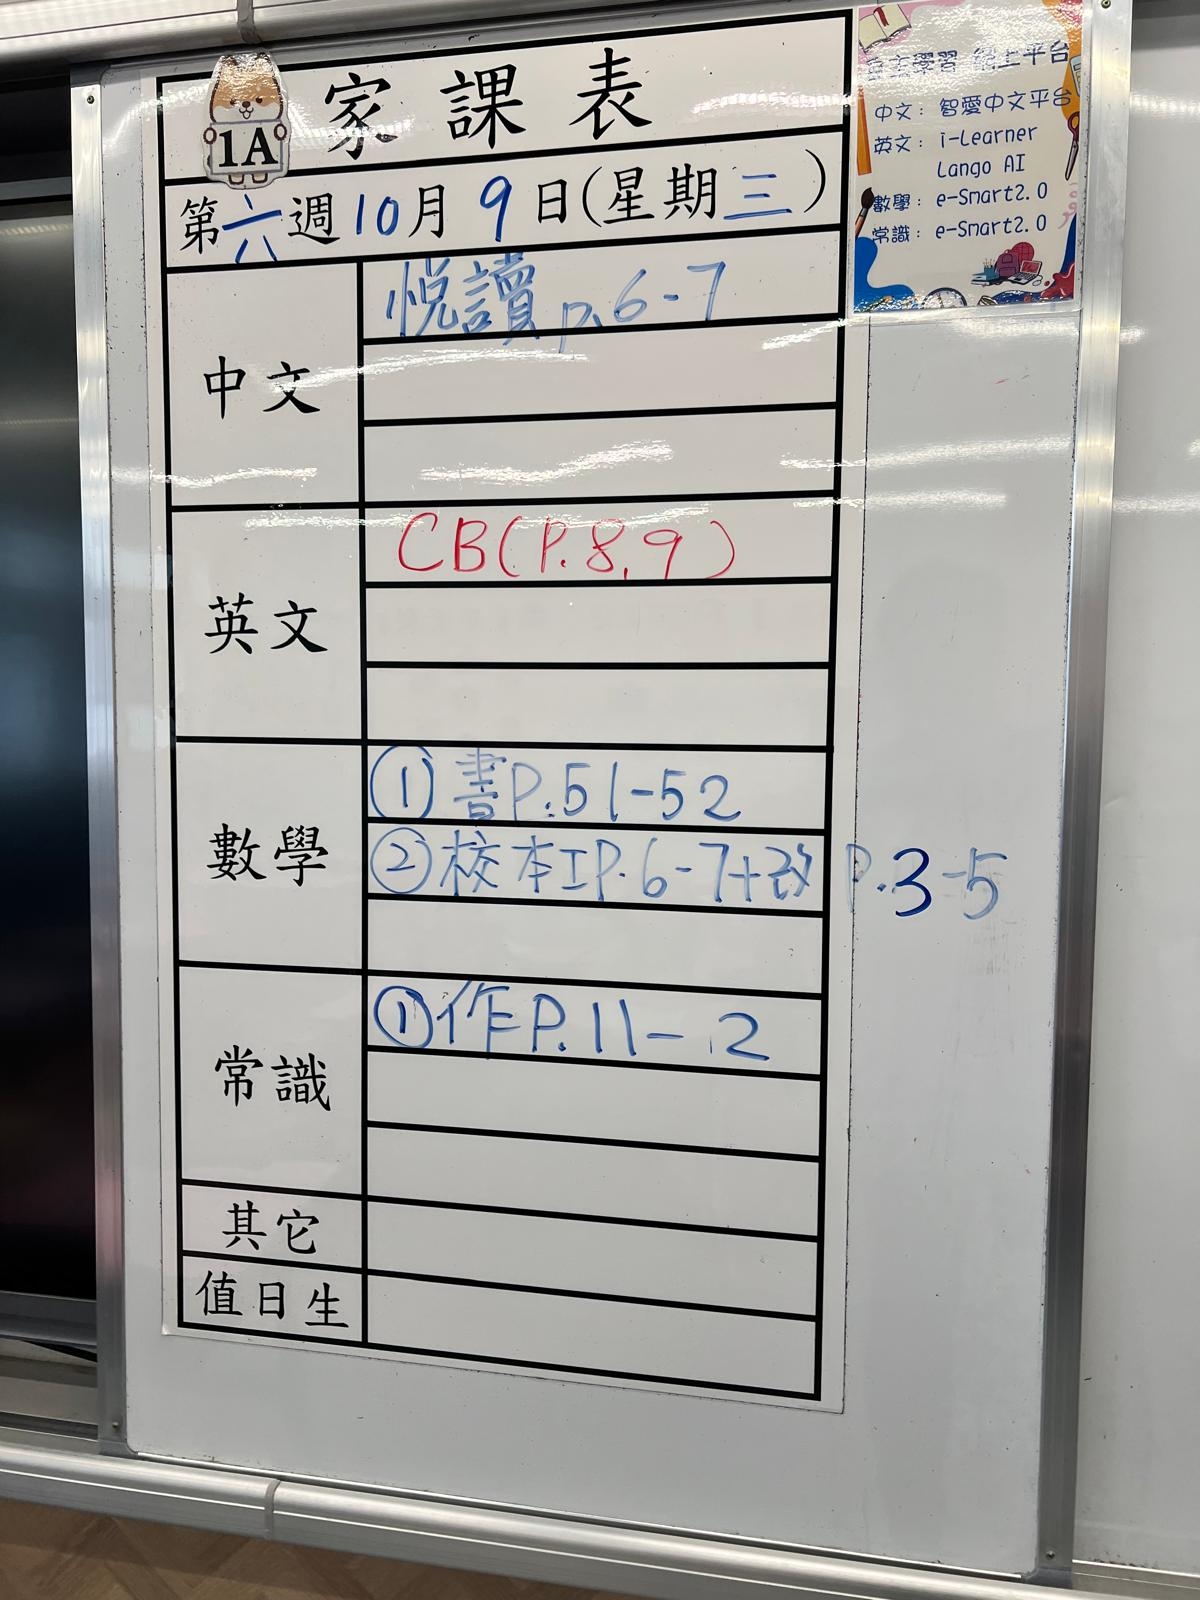 1A
家課表
第六週10月9日(星期三)
中文
悦讀 p.6-7
英文
CB(P.8,9)
數學
① 書P.51-52
② 校本工P.6-7+改 P.3-5
常識
①作P.11-12
其它
值日生
自主學習 網上平台
中文： 智愛中文平台
英文： i-Learner
Lango AI
數學： e-Smart2.0
常識： e-Smart2.0